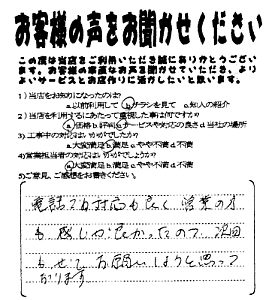 お客様の声をお聞かせください
この度は当店をご利用いただき誠にありがとうござい
ます。お客様の率直なお声を聞かせていただき、より
よいサービス作りに活かしたいと思います。
1)当店をお知りになったのは?
a.以前利用して b.チラシを見て c.知人の紹介
2)当店を利用するにあたって重視した事は何ですか?
a.価格 b.評判 c.サービスや対応の良さ d.当社の場所
3)工事中の対応はいかがでしたか?
a.大変満足 b.満足 c.やや不満 d.不満
4)営業担当者の対応はいかがでしょうか?
a.大変満足 b.満足 c.やや不満 d.不満
5)ご意見、ご感想をお書きください。
電話でお対応も良く 営業の方
も感じが良かったので 次回
もぜひお願いしようと思って
おります